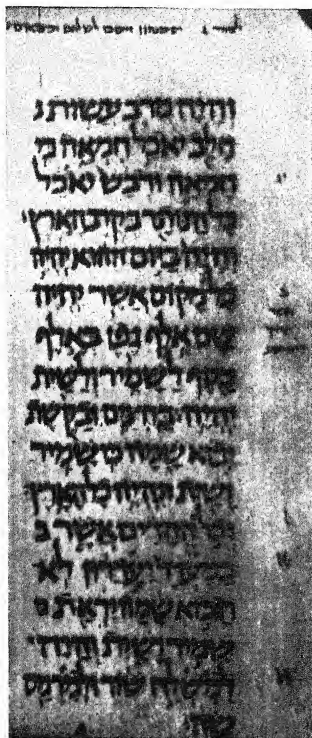 והיה מרב עשות
חלב יאכל חמאה כי
חמאה ודבש יאכל
כל הנותר בקרב הארץ׃
והיה ביום ההוא יהיה
כל מקום אשר יהיה
שם אלף גפן באלף
כסף לשמיר ולשית
יהיה׃ בחצים ובקשת
יבא שמה כי שמיר
ושית תהיה כל הארץ׃
וכל ההרים אשר ב
במעדר יעדרון לא
תבוא שמה יראת
שמיר ושית והיה
למשלח שור ולמרמס
שה׃